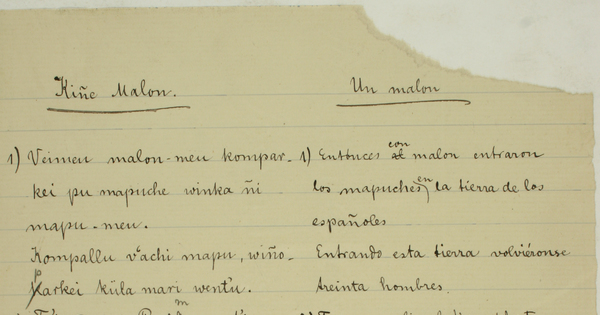 Kiñe Malon.
1) Veimeu malon-meu kompar-
kei pu mapuche winka ñi
mapu-meu.
Kompallu vachi mapu, wiño-
parkei küla mari wentu.
Un malon
1) Entónces con malon entraron
los mapuches en la tierra de los
españoles
Entrando esta tierra volviéronse
treinta hombres.